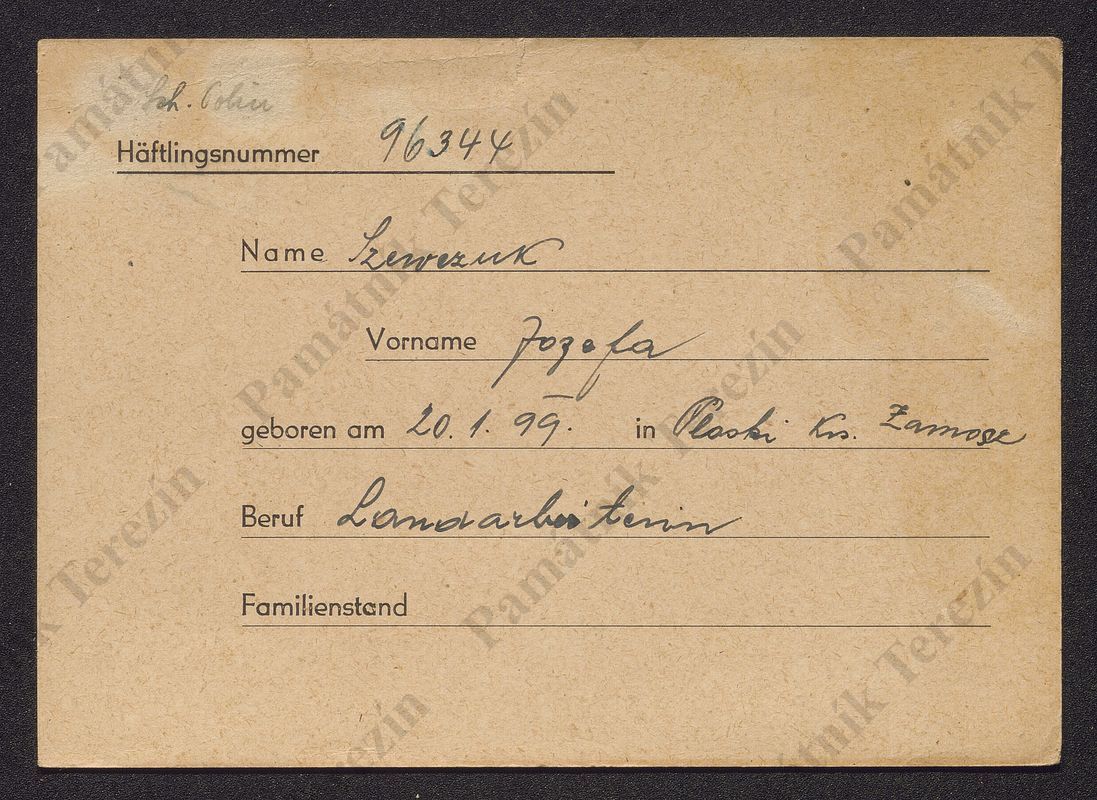 Sch. Polin
Häftlingsnummer 96344
Name Szewczuk
Vorname Jozefa
geboren am 20. 1. 99. in Ploski Krs. Zamosz
Beruf Landarbeiterin
Familienstand
Památník Terezín